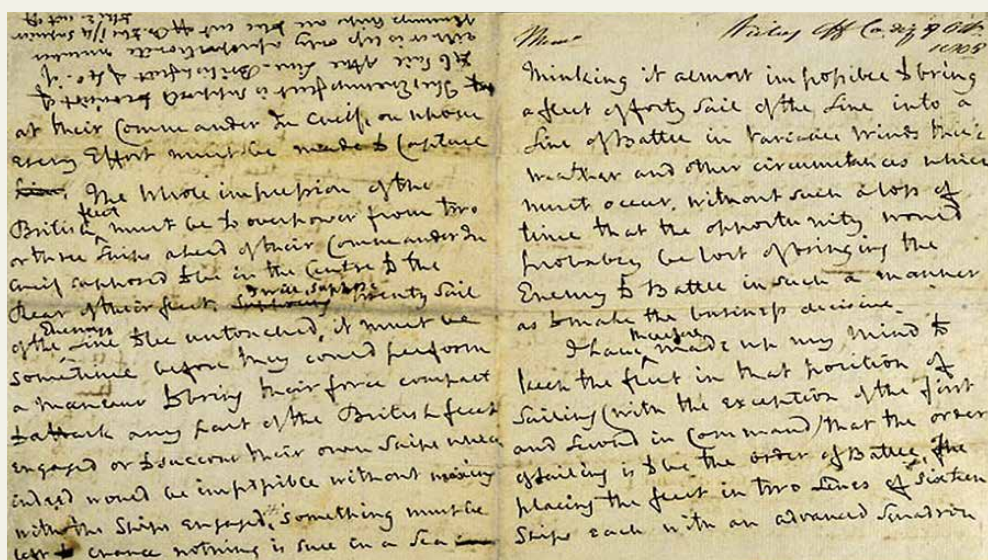 The Enemys fleet is supposed to consist of
46 Sail of the Line - British fleet of 40. if
either is less only a proportionate number
Enemys Ships are to be cut off. B. to be 1/4 superior
cut off
at their Commander In Chief, on whose
every Effort must be made to Capture
The Whole impression of the
fleet
British must be to overpower from two
or three Ships ahead of their Commander In
Chief supposed to be in the Centre to the
I will suppose
Rear of their fleet. Supposing twenty Sail
Enemys
of the Line to be untouched, it must be
sometime before they could perform
a Maneuvre to bring their force compact
to attack any part of the British fleet
engaged or to succour their own Ships which
indeed would be impossible without mixing
with the Ships engaged, Something must be
left to chance nothing is sure in a Sea
Memn
Victory off Cadiz 9 Octr.
1805
Thinking it almost impossible to bring
a fleet of forty Sail of the Line into a
Line of Battle in variable winds thick
weather and other circumstances which
must occur, without such a loss of
time that the opportunity would
probably be lost of bringing the
Enemy to Battle in such a manner
as to make the business decisive
therefore
I have made up my mind to
keep the fleet in that position of
sailing (with the exception of the first
and Second in Command) that the order
of Sailing is to be the order of Battle,
placing the fleet in two Lines of Sixteen
Ships each with an advanced Squadron